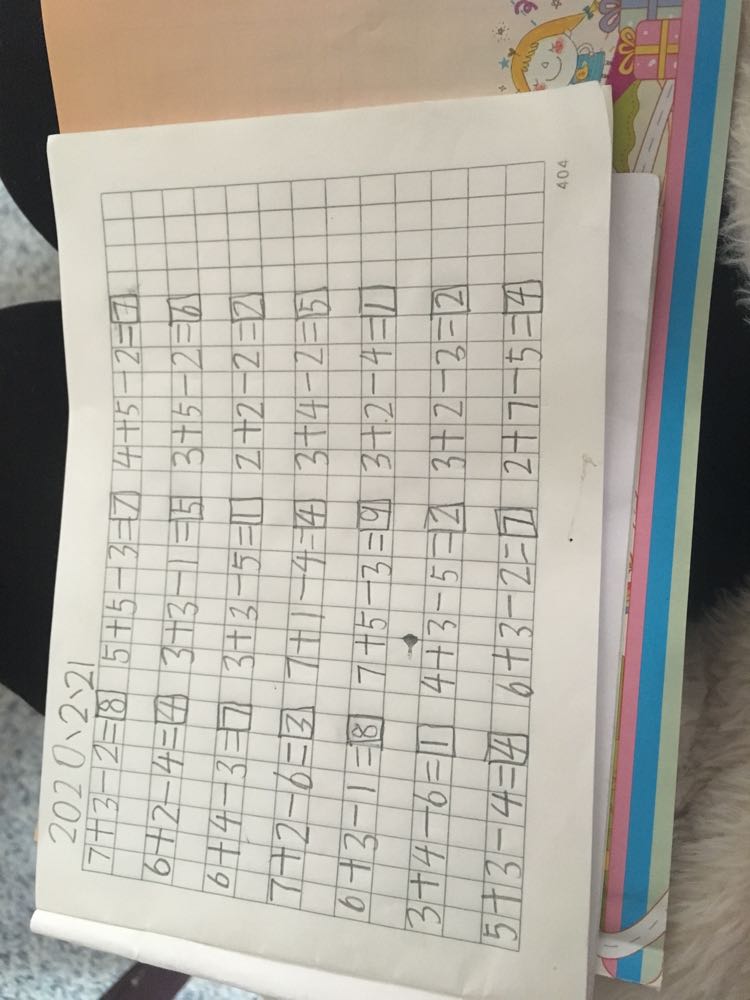 2020、2、21
7+3-2=8 5+5-3=7 4+5-2=7
6+2-4=4 3+3-1=5 3+5-2=6
6+4-3=7 3+3-5=1 2+2-2=2
7+2-6=3 7+1-4=4 3+4-2=5
6+3-1=8 7+5-3=9 3+2-4=1
3+4-6=1 4+3-5=2 3+2-3=2
5+3-4=4 6+3-2=7 2+7-5=4
404